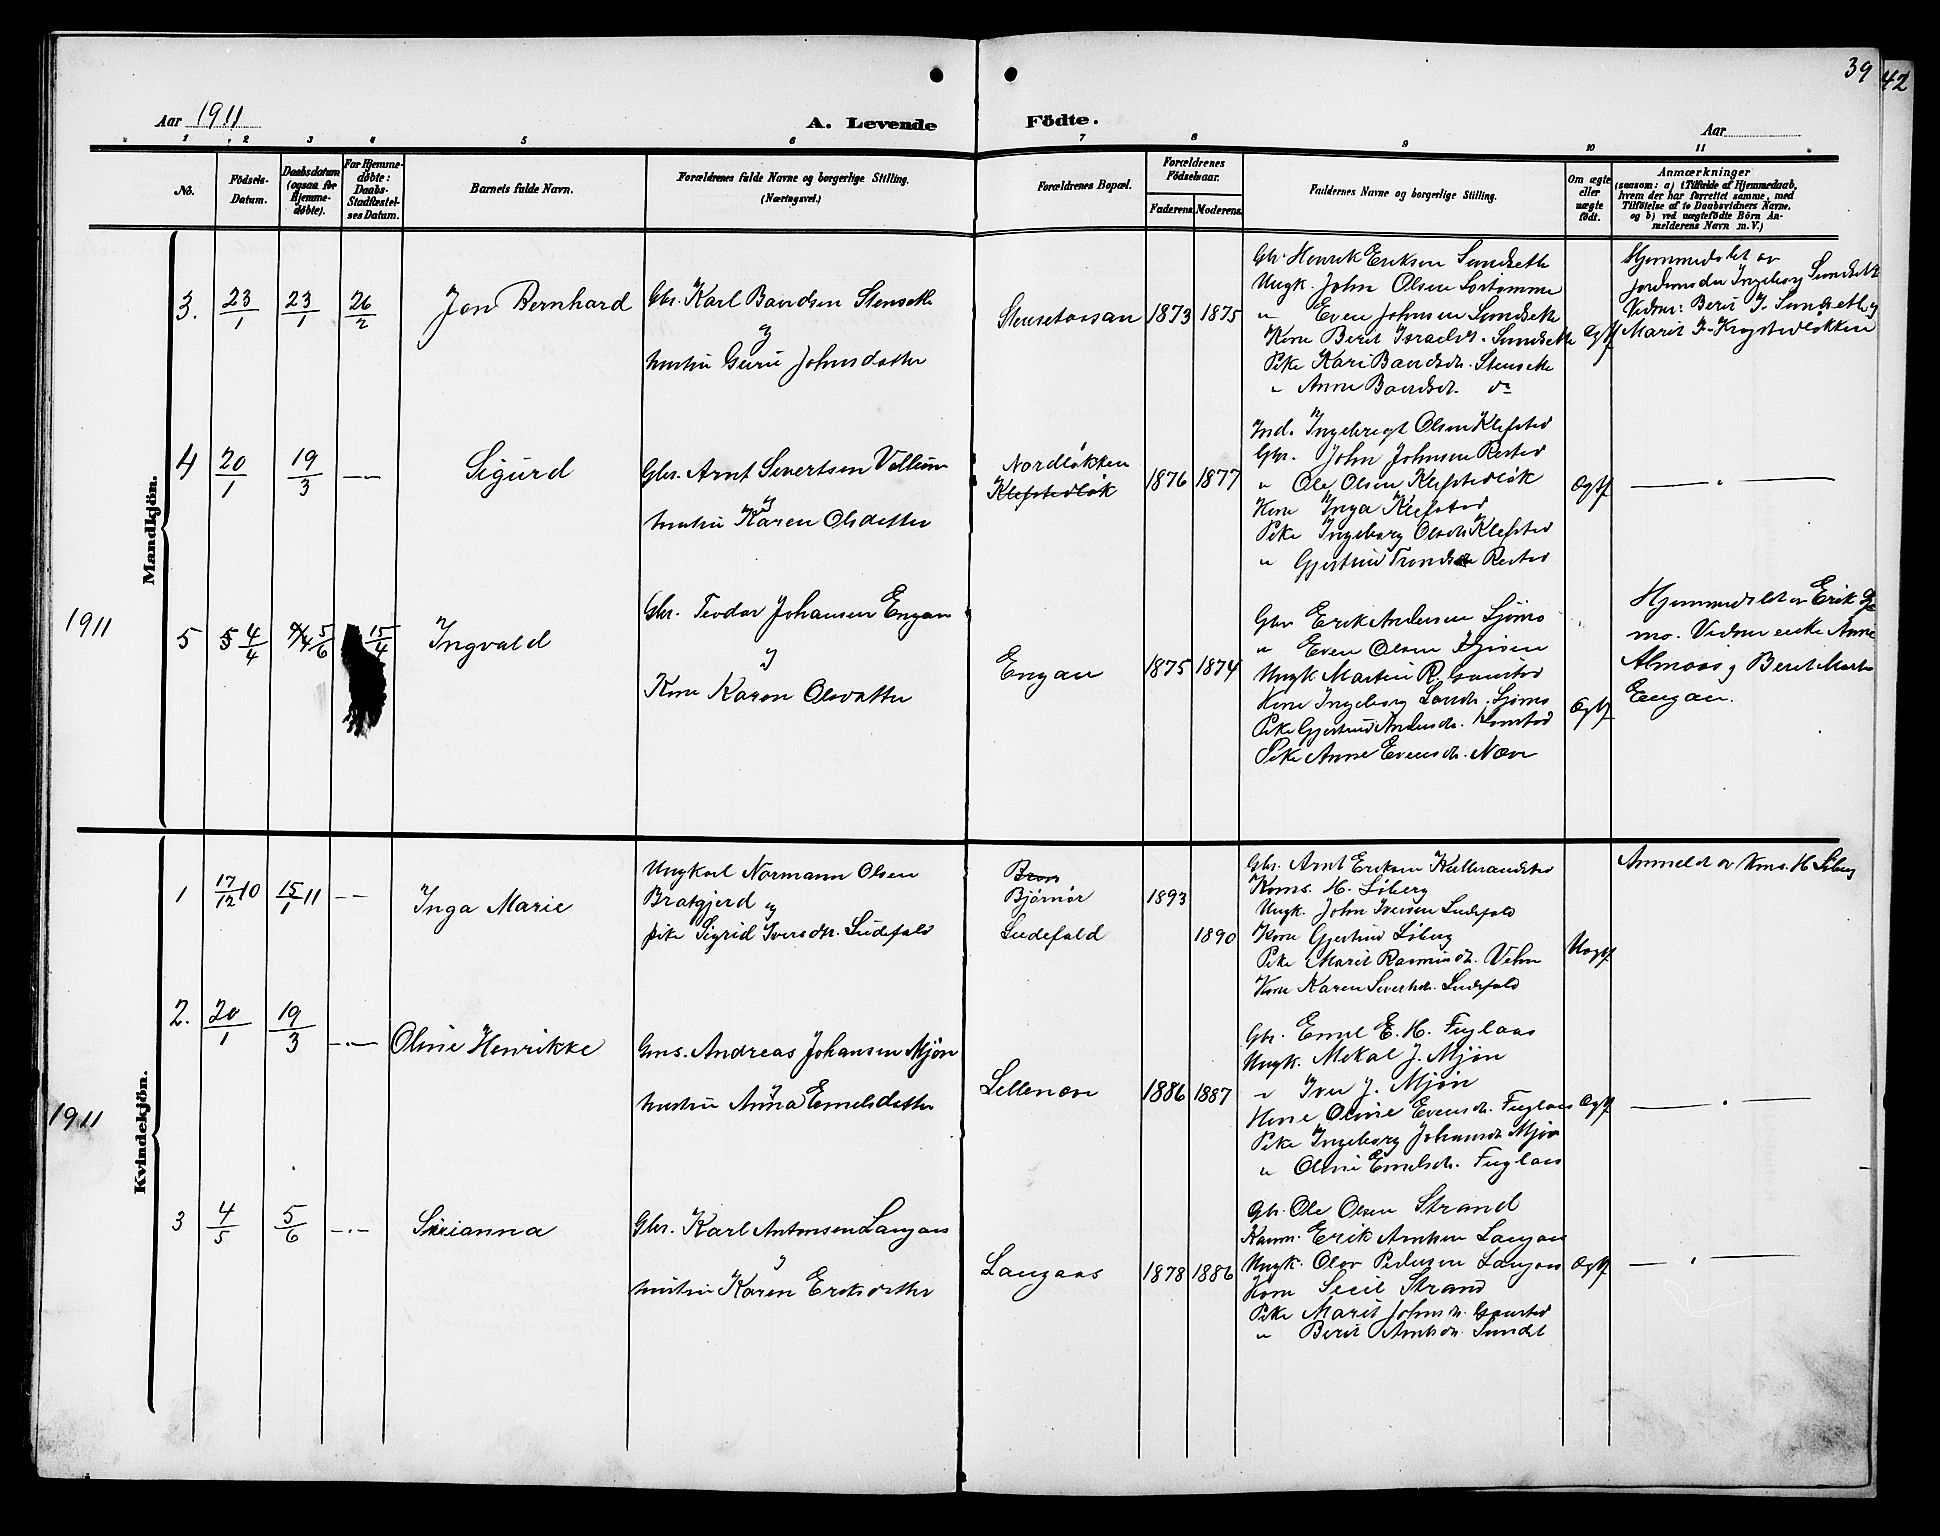 39
42
Aar 1911
A. Levende Födte.
Aar
1 2 3 4 5 6 7 8 9 10 11
No.
Födsels-Datum.
Daabsdatum (ogsaa for Hjemme-döbte).
For Hjemme-döbte: Daabs-Stadfæstel-ses Datum.
Barnets fulde Navn.
Forældrenes fulde Navne og borgerlige Stilling. (Næringsvei.)
Forældrenes Bopæl.
Forældrenes Födselsaar.
Faderens. Moderens.
Faddernes Navne og borgerlige Stilling.
Om ægte eller uægte födt.
Anmærkninger
(saasom: a) i Tilfælde af Hjemmedaab,
hvem der har forrettet samme, med
Tilföielse af to Daabsvidners Navne.
og b) ved uægtefödte Börn An-
melderens Navn m. V.)
Mandkjön.
1911
3. 23/1 23/1 26/2 Jon Bernhard
Gbr. Karl Baardsen Stensette
og
hustru Guru Johnsdatter
Stensetaasan 1873 1875
Gbr Henrik Eriksen Sundseth
Ungk. John Olsen
" Even Johnsen Sundseth
Kone Berit Israelsd. Sundseth
Pike Kari Baardsd. Stensette
" Anne Baardsd. do
Ægtef
Hjemmedøbt av
Jordmoder Ingeborg Sundseth
Vidner: Berit I. Sundseth og
Marit
4 20/1 19/3 — Sigurd
Gbr. Arnt Sivertsen Vollum
og
hustru Karen Olsdatter
Nordløkken
Klefstedløk
1876 1877
Ind. Ingebrigt Olsen Klefstad
Gbr. John Johnsen Restad
" Ole Olsen Klefstedløk
Kone Inga Klefstad
Pike Ingeborg Olsd. Klefstad
" Gjertrud Trondsd Restad
Ægtf — " —
5 5 4/4 5/6 15/4 Ingvald
Gbr. Teodor Johansen Engan
og
Kone Karen Olsdatter
Engan 1875 1874
Gbr Erik Andersen Sjømo
" Even Olsen
Ungk Martin R. Gaustad
Kone Ingeborg Larsd. Sjømo
Pike Gjertrud Andersd. Komstad
Pike Anne Evensd. Næve
Ægtf
Hjemmedøbt av Erik Sjø
mo. Vidner enke Anne
Almaas og Beret Marta
Engan.
Kvindekjön.
1911
1 17/12 10 15/1 11 — Inga Marie
Ungkarl Normann Olsen
Bratgjerd og
pike Sigrid Iversdtr. Ludefald
Bjørnør
Ludefald
1893
1890
Gbr. Arnt Eriksen
Koms. H. Løberg
Ungk. John Iversen Ludefald
Kone Gjertrud Løberg
Pike Marit Rasmusd. Vehn
Kone Karen Sivertsd. Ludefald
Uægtf
Anmeldt av Kms. H. Løberg
2. 20/1 19/3 — Oline Henrikke
Gms. Andreas Johansen Mjøn
og
hustru Anna Emelsdatter
Lillenæve 1886 1887
Gbr. Emel E. H. Fuglaas
Ungk. Mekal J. Mjøn
" Iver J. Mjøn
Kone Oline Evensd. Fuglaas
Pike Ingeborg Johansd Mjøn
" Oline Emelsd. Fuglaas
Ægtf — " —
3 4/5 5/6 — Sirianna
Gbr. Karl Antonsen Langaas
og
hustru Karen Eriksdatter
Langaas 1878 1886
Gbr. Ole Olsen Strand
Kaarm. Erik Arntsen Langaas
Ungk. Olav Pedersen Langaas
Kone Secil Strand
Pike Marit Johnsd. Gaustad
" Berit Arntsd. Sundet
Ægtf — " —